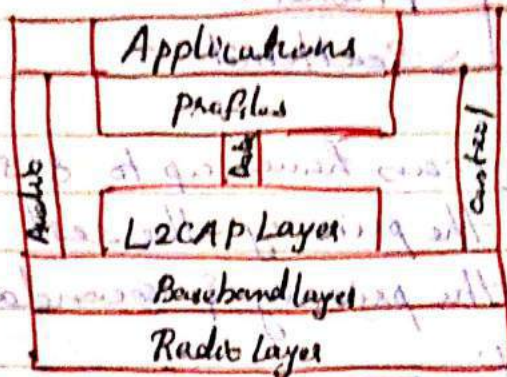 Applications
Profiles
Data
Audio
Control
L2CAP Layer
Baseband layer
Radio Layer